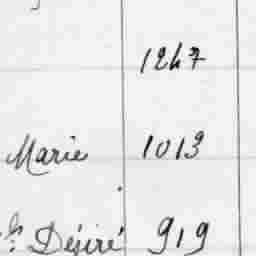 1247
Marie 1013
Désiré 919